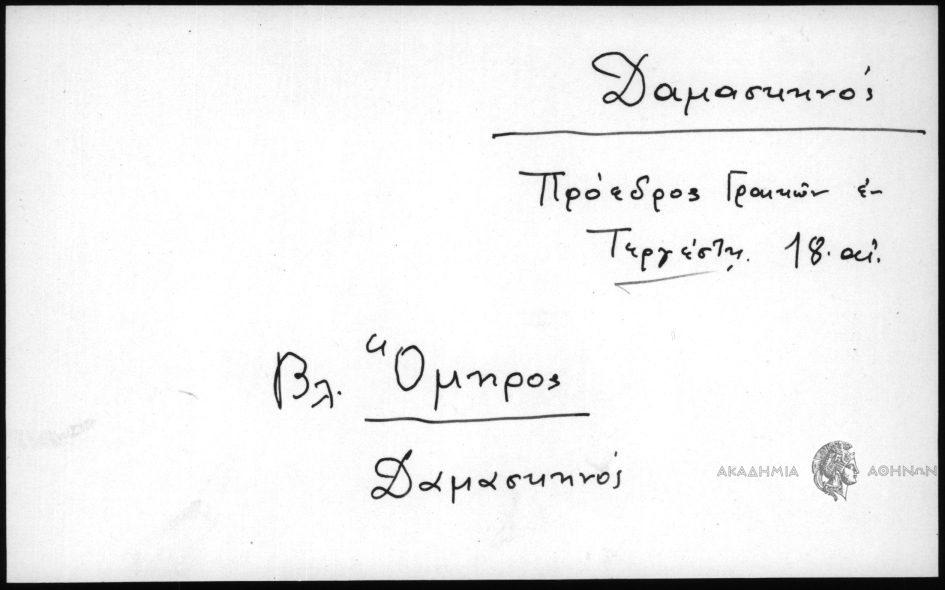 Δαμασκηνός
Πρόεδρος Γραικῶν ἐν
Τεργέστῃ. 18. αἰ.
Βλ. Ὅμηρος
Δαμασκηνός
ΑΚΑΔΗΜΙΑ ΑΘΗΝΩΝ